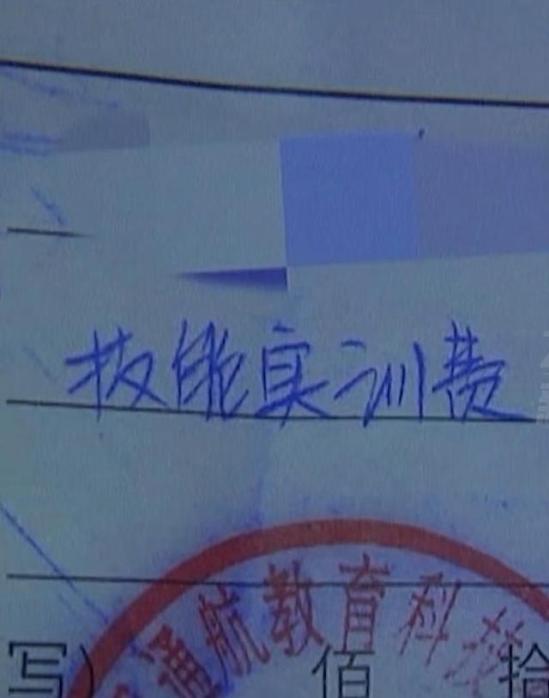 技能实训费
通航教育科技
写) 佰 拾